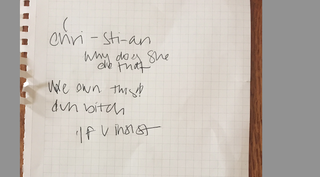 chri - sti - an
why does she
do that
We own this!!
duh bitch
if u insist